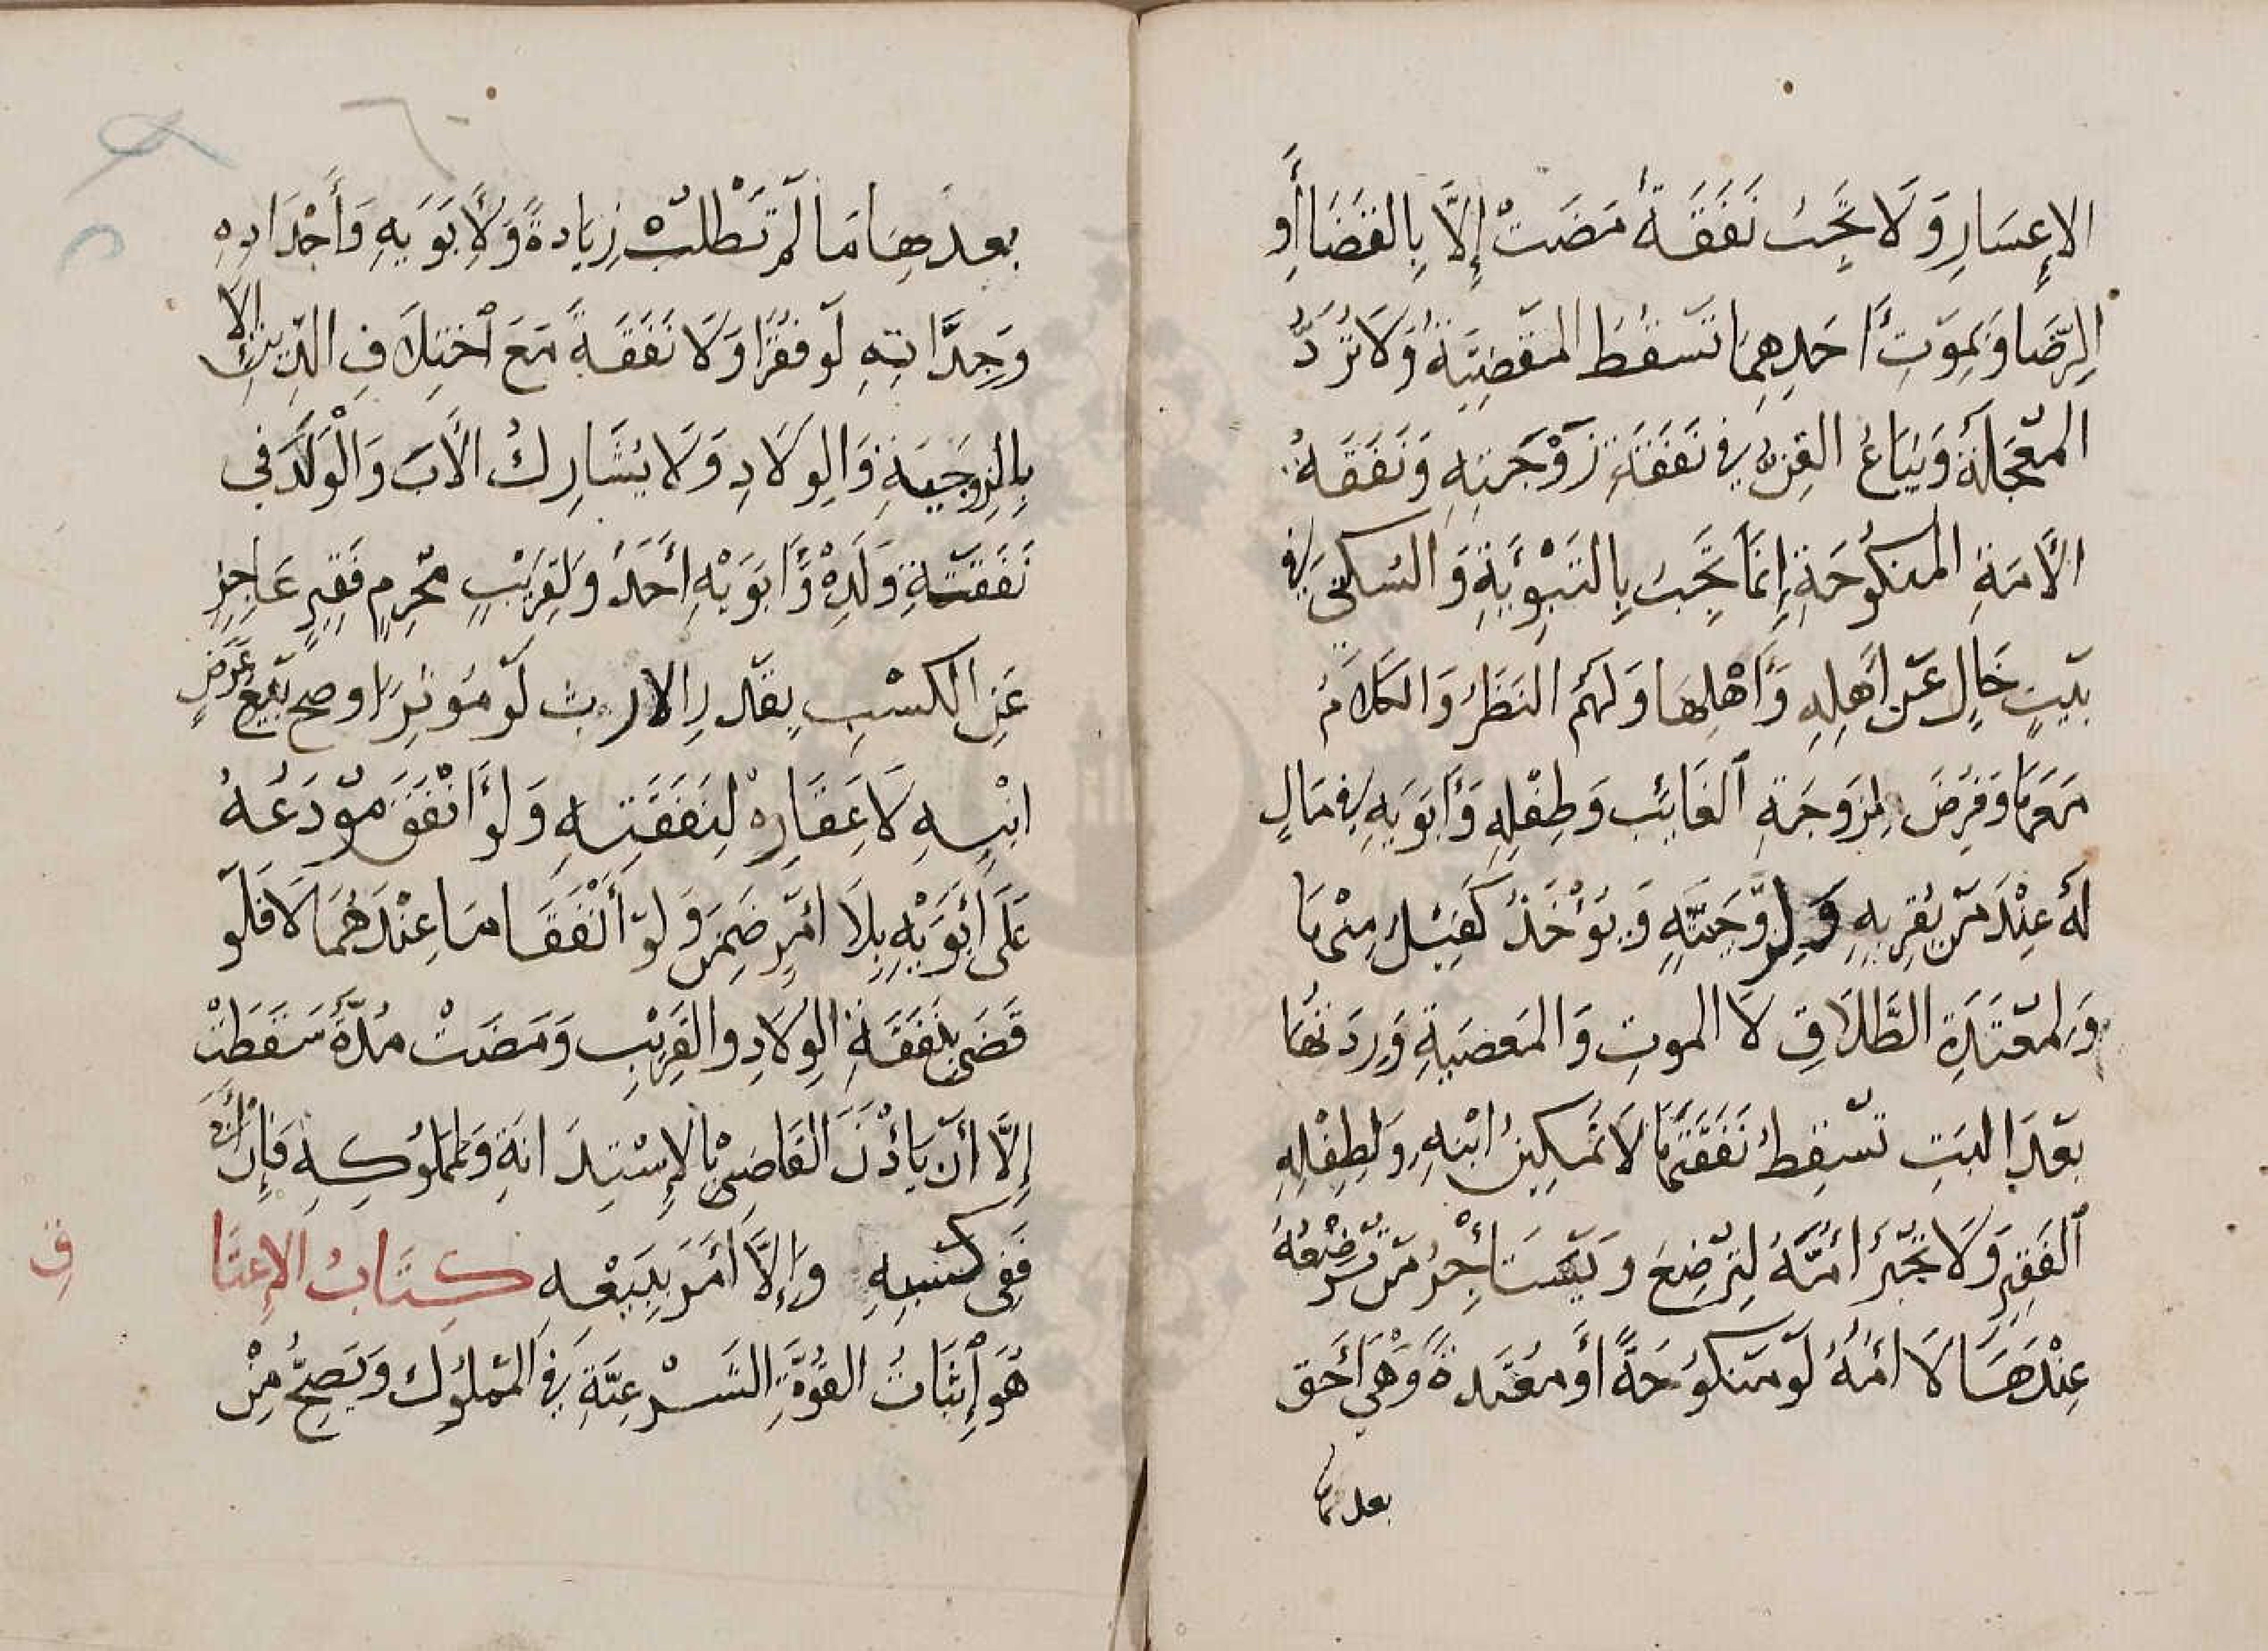 الإعسار ولا تجب نفقة مضت إلا بالقضا أو
الرضا وبموت احدهما تسقط المقضية ولا ترد
المعجلة ويباع القن في نفقة زوجته ونفقة
الأمة المنكوحة إنما تجب بالتبوئية والسكنى في
بيت خال عن أهله وأهلها ولهم النظر والكلام
معها وفرض لزوجة الغائب وطفله وأبويه في مال
له عند من يقر به ولزوجيته ويؤخذ كفيل منها
ولمعتدة الطلاق لا الموت والمعصية وردتها
بعد البت تسقط نفقتها لا تمكين ابنه ولطفله
الفقير ولا تجبر امه لترضع ويستأجر من ترضعه
عندها لا أمه لو منكوحة أو معتدة وهي أحق
بعدها
بعدها ما لم تطلب زيادة ولأبويه وأجداده
وجداته لو فقرا ولا نفقة مع اختلاف الدين إلا
بالزوجية والولاد ولا يشارك الأب والولد في
نفقة ولده وأبويه أحد ولقريب محرم فقير عاجز
عن الكسب بقدر الارث لو موسرا وصح بيع عرض
ابنه لا عقاره لنفقته ولو أنفق مودعه
على أبويه بلا امر ضمن ولو أنفقا ما عندهما لا فلو
قضى بنفقة الولاد والقريب ومضت مدة سقطت
إلا أن يأذن القاضي بالإستدانة ولمملوكه فإن أبى
ففي كسبه وإلا أمر ببيعه كتاب الإعتا
ق
هو إثبات القوة الشرعية في المملوك ويصح من